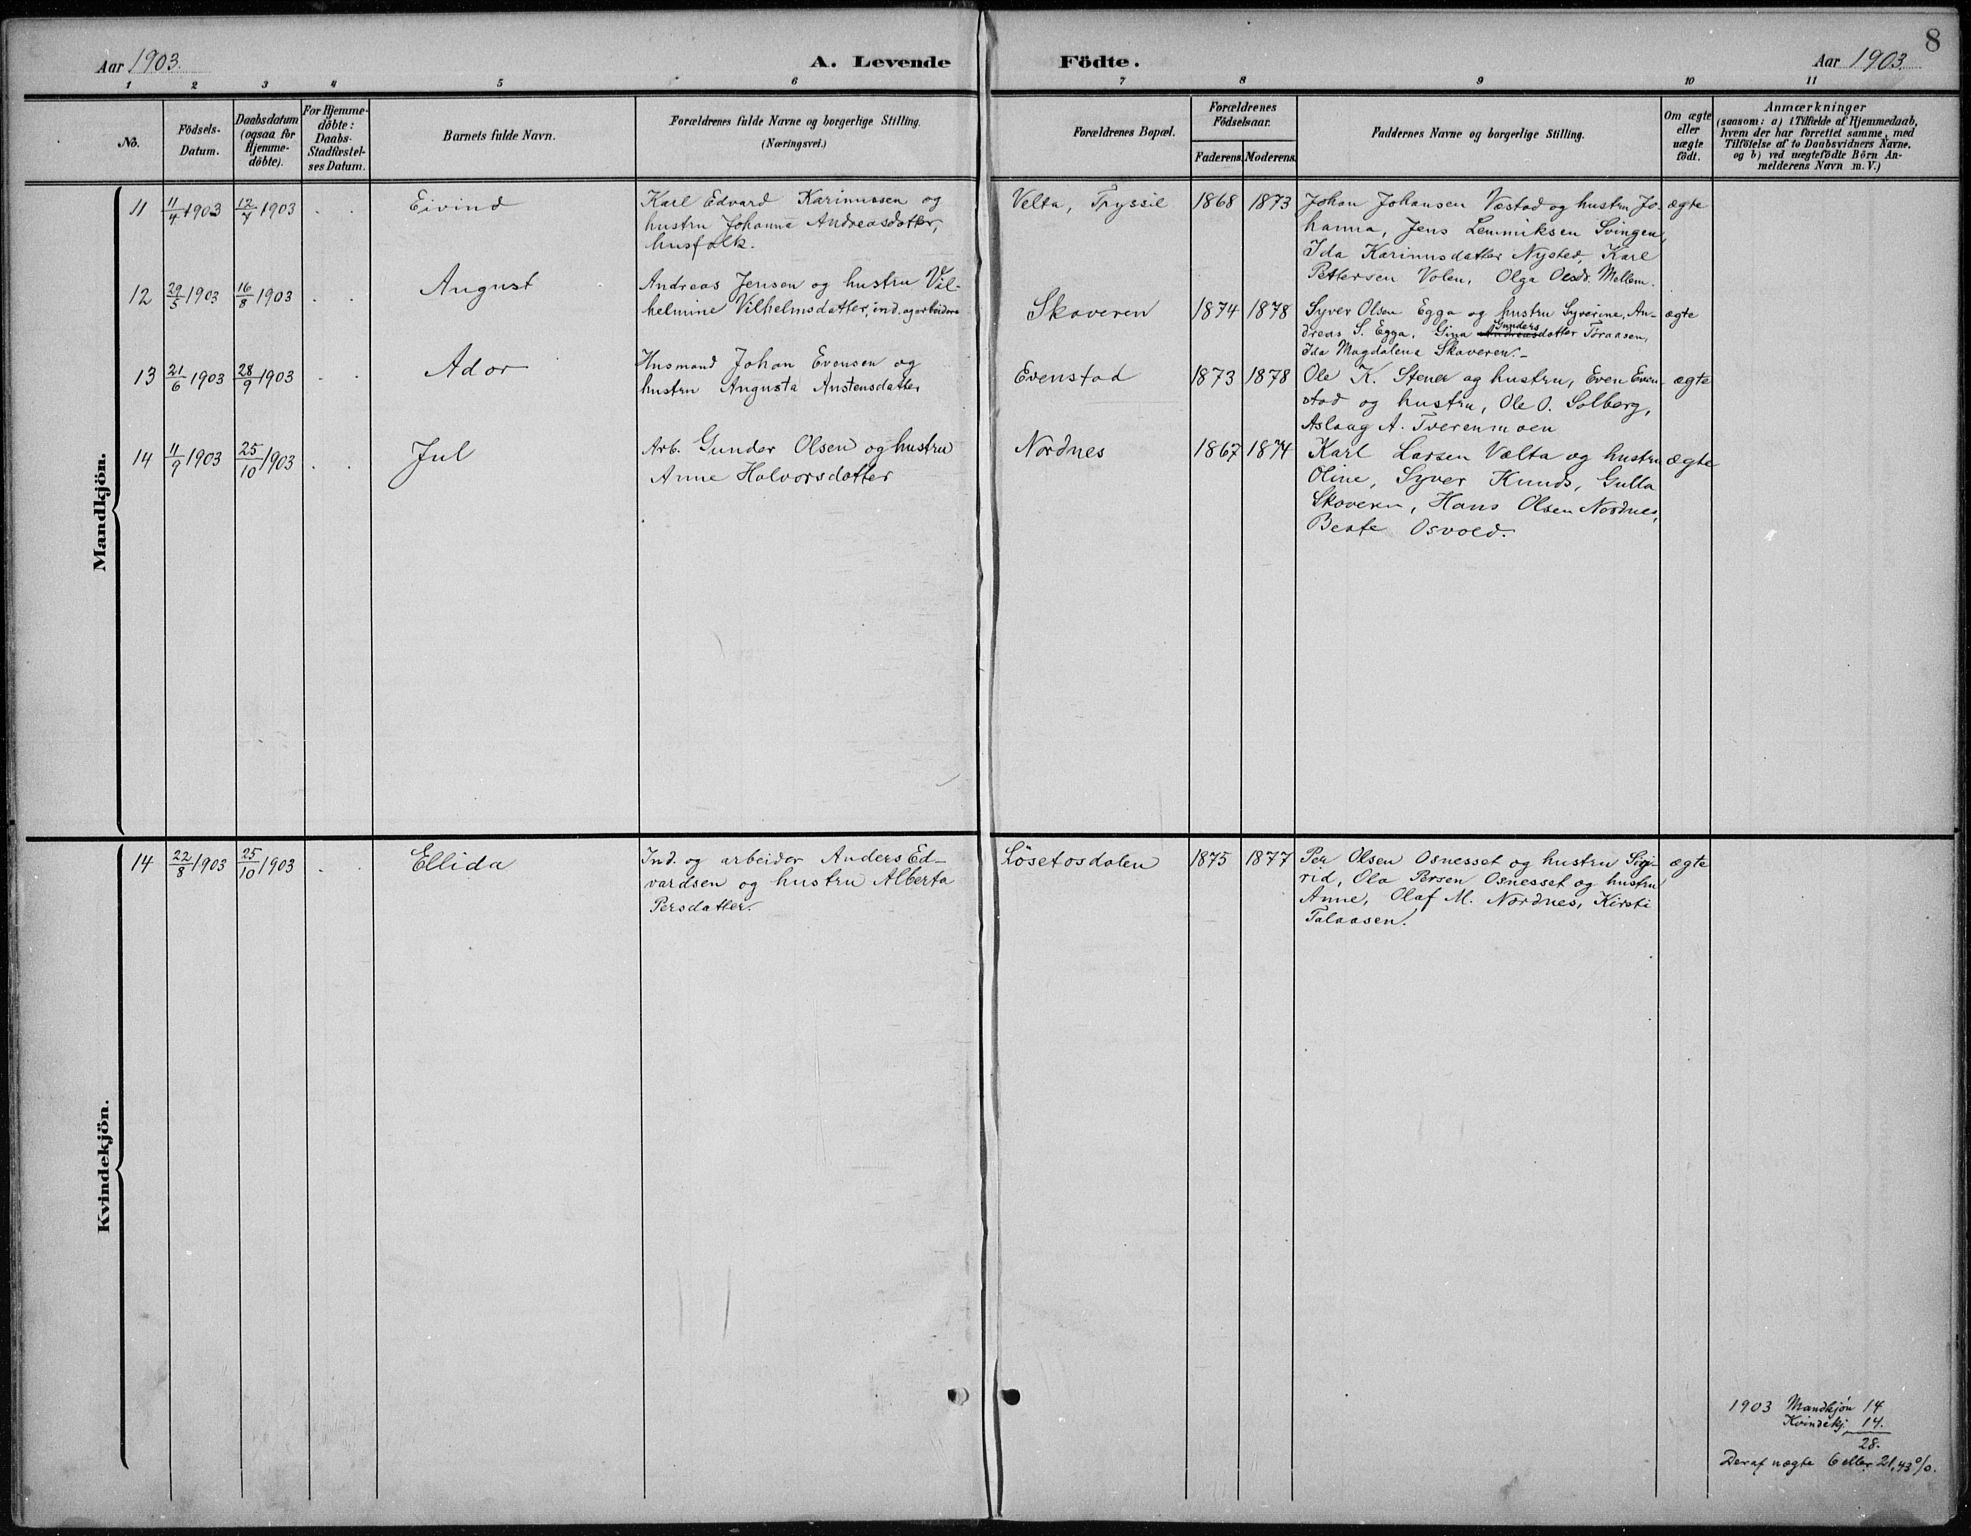 8
Aar 1903.
A. Levende Födte.
Aar 1903.
1 2 3 4 5 6 7 8 9 10 11
No.
Födsels-
Datum.
Daabsdatum
(ogsaa for
Hjemme-
döbte).
For Hjemme-
döbte:
Daabs-
Stadfæstel-
ses Datum.
Barnets fulde Navn.
Forældrenes fulde Navne og borgerlige Stilling.
(Næringsvei.)
Forældrenes Bopæl.
Forældrenes
Födselsaar.
Faderens. Moderens.
Faddernes Navne og borgerlige Stilling.
Om ægte
eller
uægte
födt.
Anmærkninger
(saasom: a) i Tilfælde af Hjemmedaab,
hvem der har forrettet samme, med
Tilföielse af to Daabsvidners Navne.
og b) ved uægtefödte Börn An-
melderens Navn m. V.)
Mandkjön.
11 11/4 1903 12/7 1903 . . Eivind
Karl Edvard Karinussen og
hustru Johanna Andreasdatter,
husfolk.
Velta, Tryssil 1868 1873
Johan Johansen Væstad og hustru Jo-
hanna, Jens Lemmiksen Svingen,
Ida Karinusdatter Nysted, Karl
Pettersen Volen, Olga Olsdr. Mellem.
ægte
12 29/5 1903 16/8 1903 . . August
Andreas Jensen og hustru Vil-
helmine Vilhelmsdatter, ind. og arbeidere
Skoveren 1874 1878
Syver Olsen Egga og hustru Syverine, An-
dreas S. Egga, Gina Andreasdatter Gunders Toraasen,
Ida Magdalena Skoveren.
ægte
13 21/6 1903 28/9 1903 . . Ador
Husmand Johan Evensen og
hustru Augusta Anstensdatter
Evenstad 1873 1878
Ole K. Stener og hustru, Even Even-
stad og hustru, Ole O. Solberg,
Aslaug A. Tverenmoen
ægte
14 11/9 1903 25/10 1903 . . Jul
Arb. Gunder Olsen og hustru
Anne Halvorsdatter
Nordnes 1867 1874
Karl Larsen Vælta og hustru
Oline, Syver Knuds, Gulla
Skoveren, Hans Olsen Nordnes,
Beate Osvold.
ægte
Kvindekjön.
14 22/8 1903 25/10 1903 . . Ellida
Ind. og arbeider Anders Ed-
vardsen og hustru Alberta
Persdatter.
Lösetosdalen 1875 1877
Per Olsen Osnesset og hustru Sig-
rid, Ola Persen Osnesset og hustru
Anne, Olaf M. Nordnes, Kirsti
Talaasen.
ægte
1903 Mandkjön 14
Kvindekj. 14.
28.
Deraf uægte 6 eller 21,43 %.